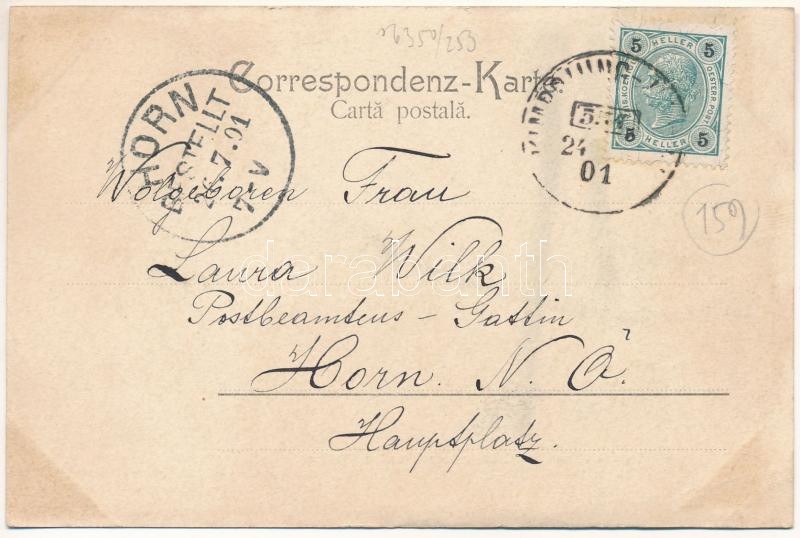 26350/253
Correspondenz-Karte
Cartă postală.
5 HELLER 5
OESTERR. POST
5 HELLER 5
24
01
HORN
BESTELLT
7.01
7·V
159
Wolgeboren Frau
Laura Wilk
Postbeamtens-Gattin
Horn. N. Ö.
Hauptplatz.
darabanth